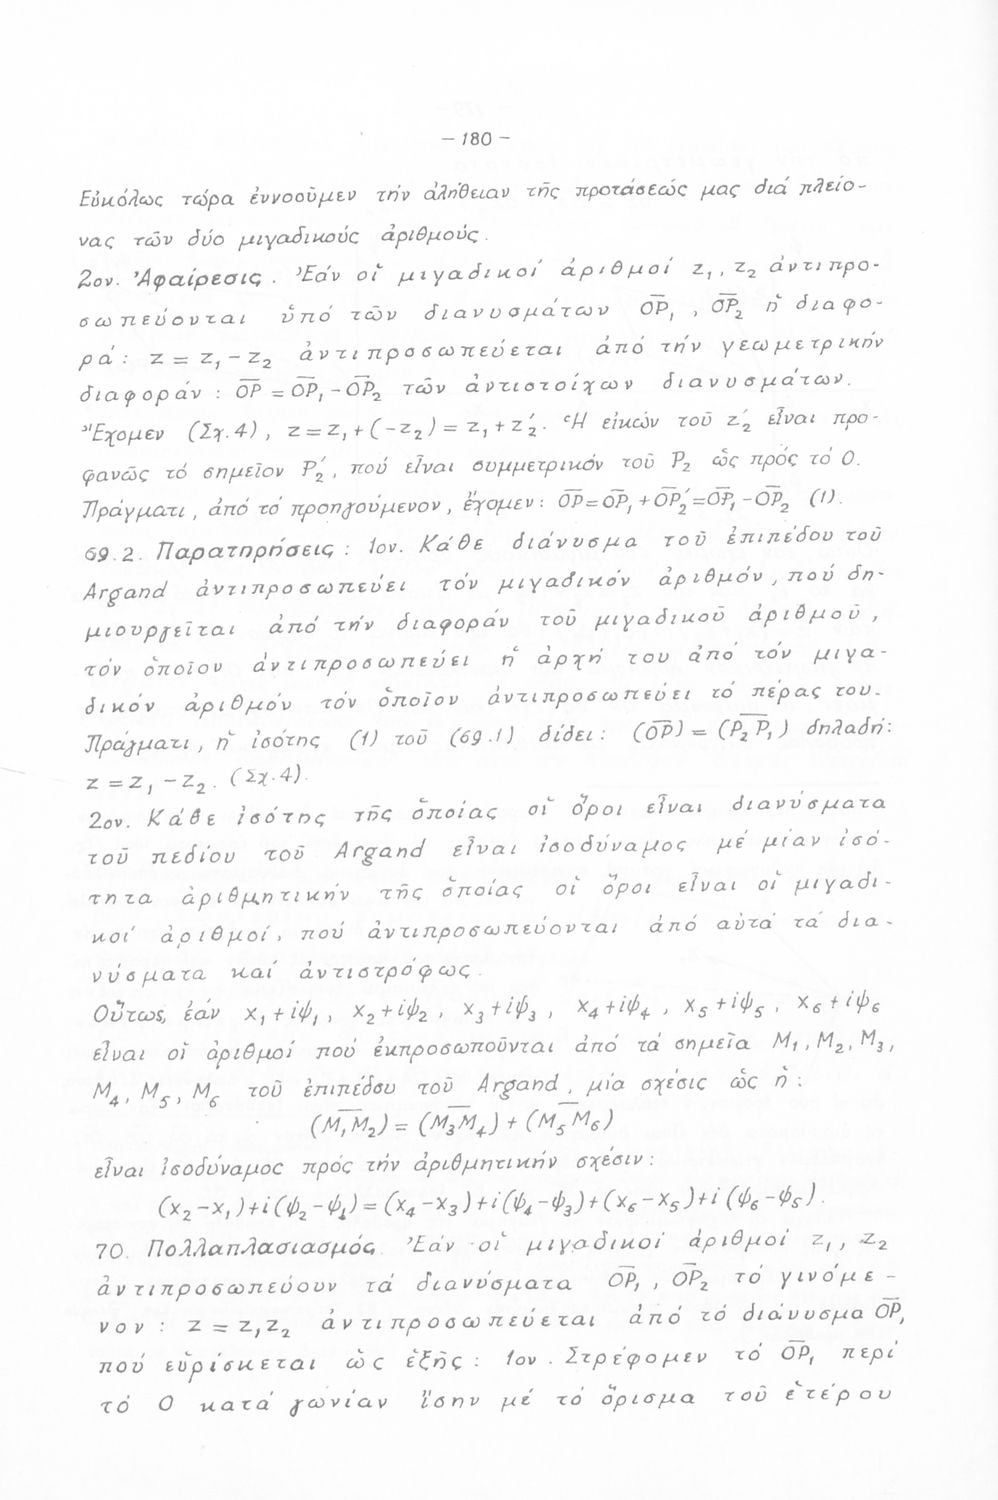 - 180 -
Εὐκόλως τώρα ἐννοοῦμεν τήν ἀλήθειαν τῆς προτάσεώς μας διά πλείο-
νας τῶν δύο μιγαδικούς ἀριθμούς.
2ον. Ἀφαίρεσις. Ἐάν οἱ μιγαδικοί ἀριθμοί z₁, z₂ ἀντιπρο-
σωπεύονται ὑπό τῶν διανυσμάτων O̅P̅₁, O̅P̅₂ ἡ διαφο-
ρά: z = z₁ - z₂ ἀντιπροσωπεύεται ἀπό τήν γεωμετρικήν
διαφοράν: O̅P̅ = O̅P̅₁ - O̅P̅₂ τῶν ἀντιστοίχων διανυσμάτων.
Ἔχομεν (Σχ.4), z = z₁ + (-z₂) = z₁ + z₂́. Ἡ εἰκών τοῦ z₂́ εἶναι προ-
φανῶς τό σημεῖον P₂́, πού εἶναι συμμετρικόν τοῦ P₂ ὡς πρός τό O.
Πράγματι, ἀπό τό προηγούμενον, ἔχομεν: O̅P̅ = O̅P̅₁ + O̅P̅₂́ = O̅P̅₁ - O̅P̅₂ (1).
69.2. Παρατηρήσεις: 1ον. Κάθε διάνυσμα τοῦ ἐπιπέδου τοῦ
Argand ἀντιπροσωπεύει τόν μιγαδικόν ἀριθμόν, πού δη-
μιουργεῖται ἀπό τήν διαφοράν τοῦ μιγαδικοῦ ἀριθμοῦ,
τόν ὁποῖον ἀντιπροσωπεύει ἡ ἀρχή του ἀπό τόν μιγα-
δικόν ἀριθμόν τόν ὁποῖον ἀντιπροσωπεύει τό πέρας του.
Πράγματι, ἡ ἰσότης (1) τοῦ (69.1) δίδει: (O̅P̅) = (P̅₂P̅₁) δηλαδή:
z = z₁ - z₂. (Σχ.4).
2ον. Κάθε ἰσότης τῆς ὁποίας οἱ ὅροι εἶναι διανύσματα
τοῦ πεδίου τοῦ Argand εἶναι ἰσοδύναμος μέ μίαν ἰσό-
τητα ἀριθμητικήν τῆς ὁποίας οἱ ὅροι εἶναι οἱ μιγαδι-
κοί ἀριθμοί, πού ἀντιπροσωπεύονται ἀπό αὐτά τά δια-
νύσματα καί ἀντιστρόφως.
Οὕτως, ἐάν x₁+iψ₁, x₂+iψ₂, x₃+iψ₃, x₄+iψ₄, x₅+iψ₅, x₆+iψ₆
εἶναι οἱ ἀριθμοί πού ἐκπροσωποῦνται ἀπό τά σημεῖα M₁, M₂, M₃,
M₄, M₅, M₆ τοῦ ἐπιπέδου τοῦ Argand, μία σχέσις ὡς ἡ:
(M̅₁M̅₂) = (M̅₃M̅₄) + (M̅₅M̅₆)
εἶναι ἰσοδύναμος πρός τήν ἀριθμητικήν σχέσιν:
(x₂-x₁)+i(ψ₂-ψ₁) = (x₄-x₃)+i(ψ₄-ψ₃)+(x₆-x₅)+i(ψ₆-ψ₅).
70. Πολλαπλασιασμός. Ἐάν οἱ μιγαδικοί ἀριθμοί z₁, z₂
ἀντιπροσωπεύουν τά διανύσματα O̅P̅₁, O̅P̅₂ τό γινόμε-
νον: z = z₁z₂ ἀντιπροσωπεύεται ἀπό τό διάνυσμα O̅P̅,
πού εὑρίσκεται ὡς ἑξῆς: 1ον. Στρέφομεν τό O̅P̅₁ περί
τό O κατά γωνίαν ἴσην μέ τό ὅρισμα τοῦ ἑτέρου